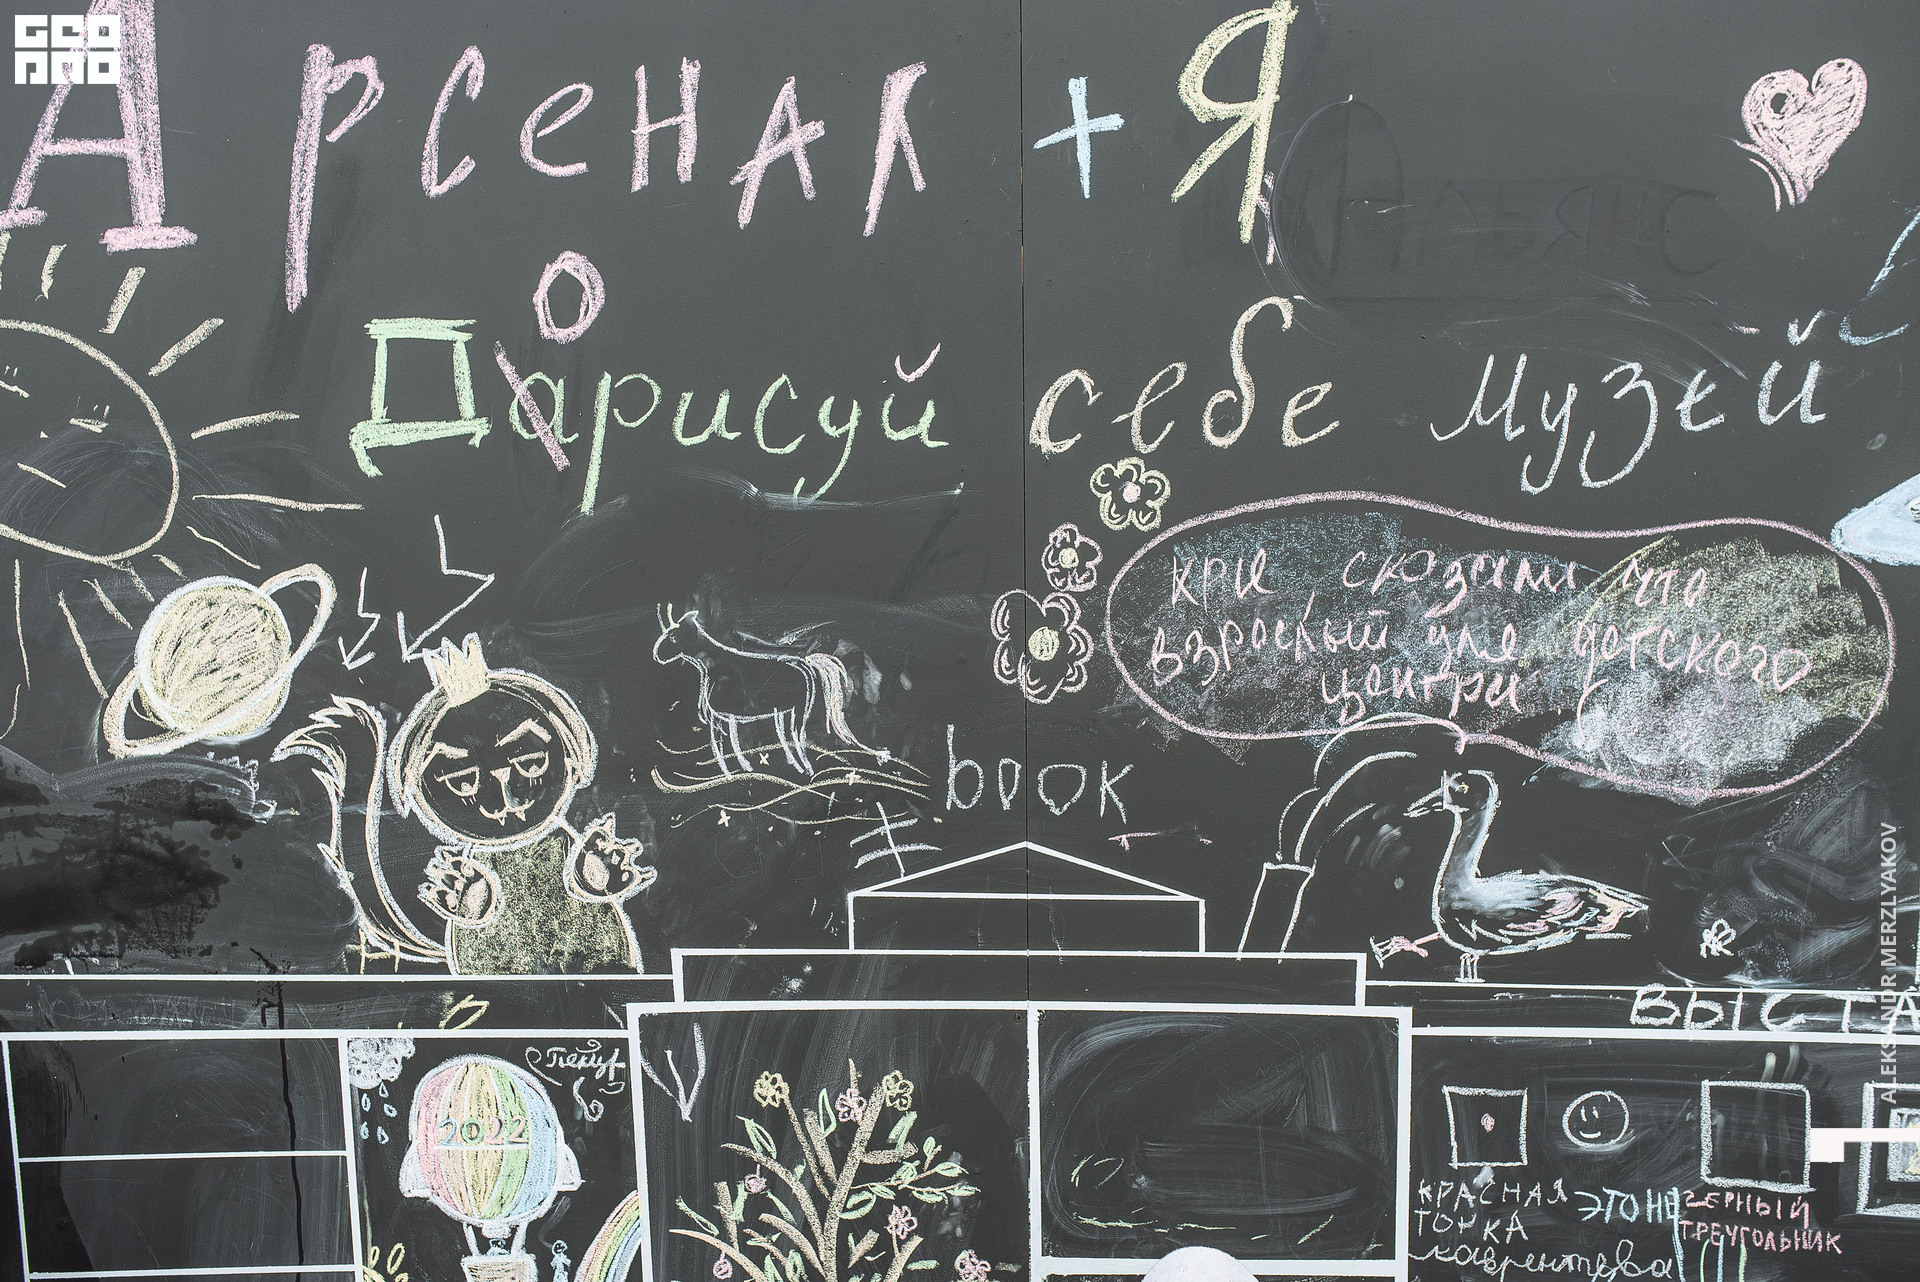 GEO
PRO
Арсенал + Я
о
Дарисуй себе музей
что
взрослый детского
центра
book
ВЫСТА
2022
КРАСНАЯ
ТОЧКА
Лаврентьева
ЭТО НЕ
ЧЕРНЫЙ
ТРЕУГОЛЬНИК
ALEKSANDR MERZLYAKOV